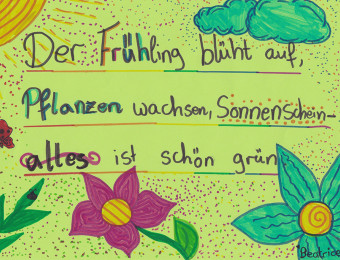 Der Frühling blüht auf,
Pflanzen wachsen, Sonnenschein-
alles ist schön grün
Beatrice